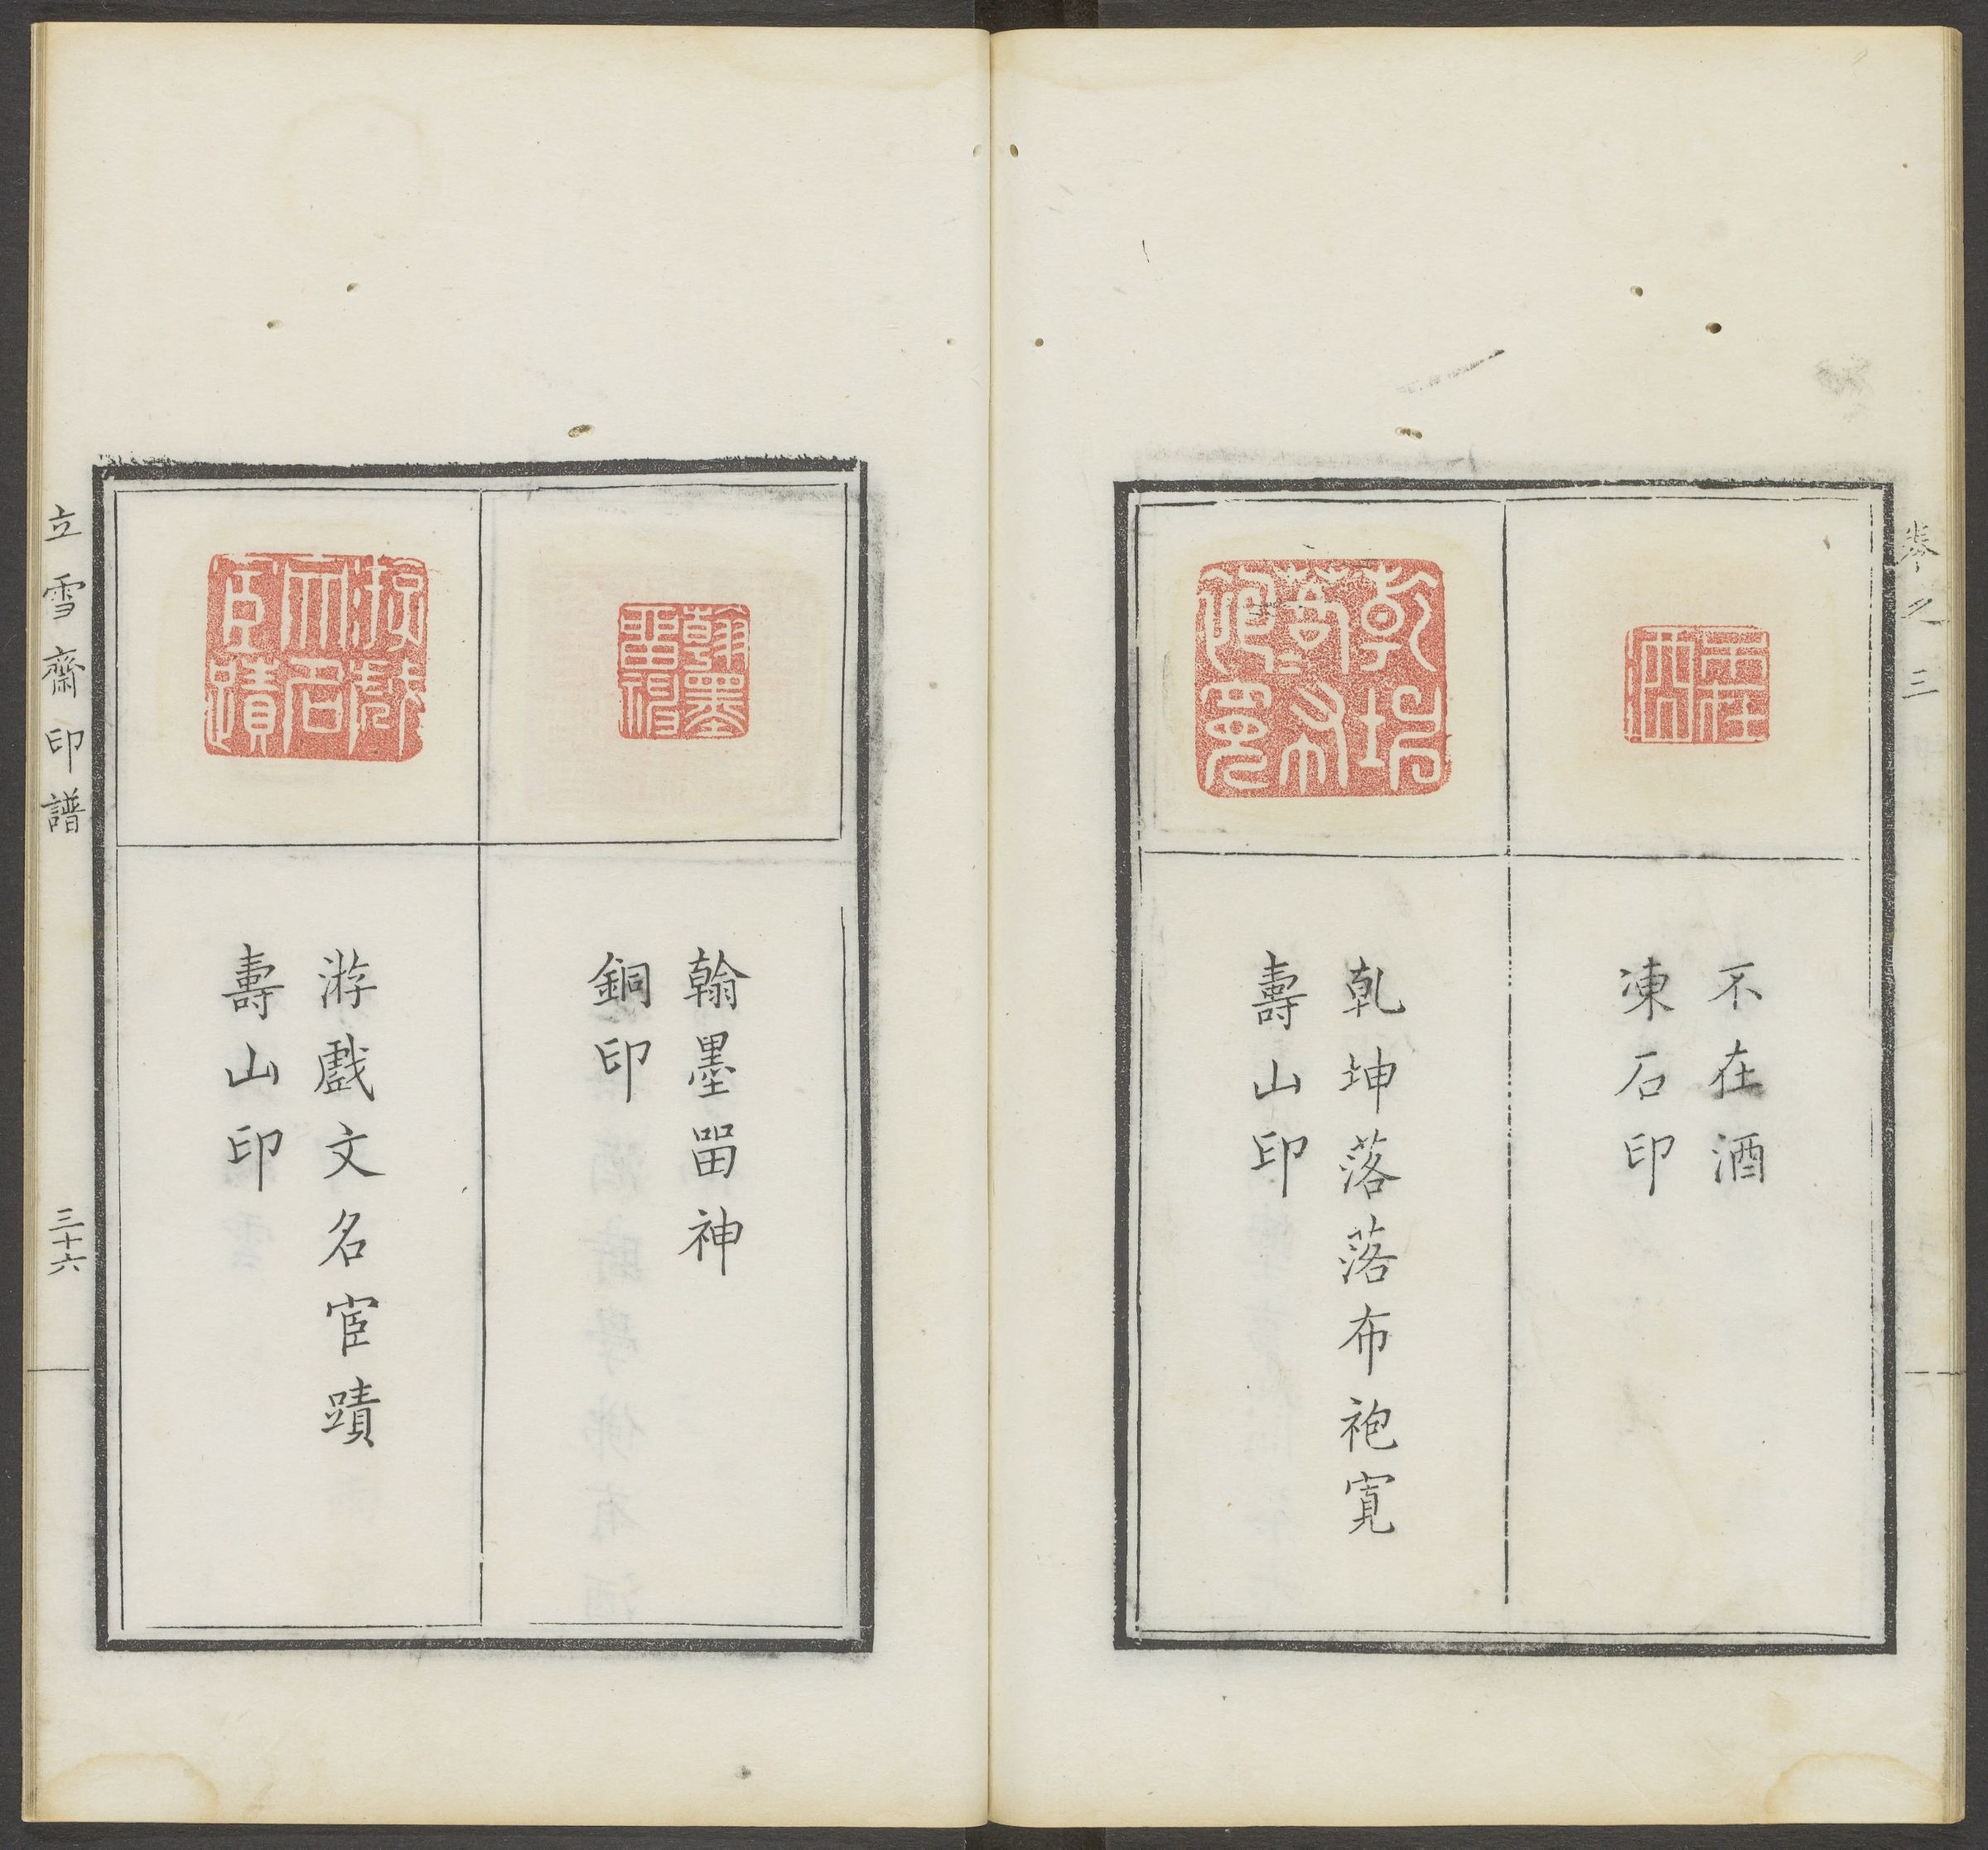 卷之三
不在酒
凍石印
乹坤落落布袍寬
壽山印
翰墨畱神
銅印
游戲文名宦蹟
壽山印
立雪齋印譜
三十六